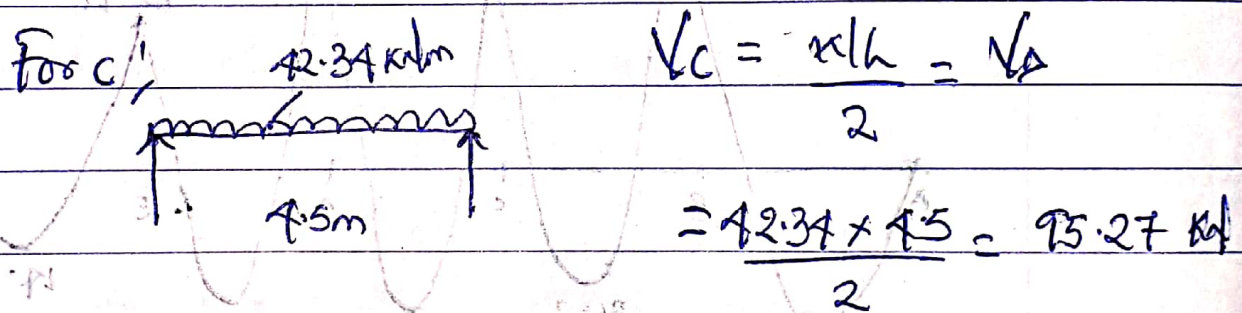 For C', 42.34 KN/m
4.5m
Vc = wl/2 = VD
= 42.34 x 4.5 / 2 = 95.27 KN